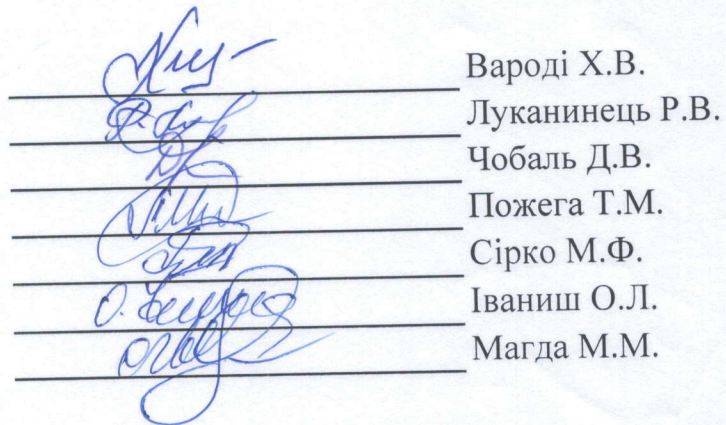 Вароді Х.В.
Луканинець Р.В.
Чобаль Д.В.
Пожега Т.М.
Сірко М.Ф.
Іваниш О.Л.
Магда М.М.